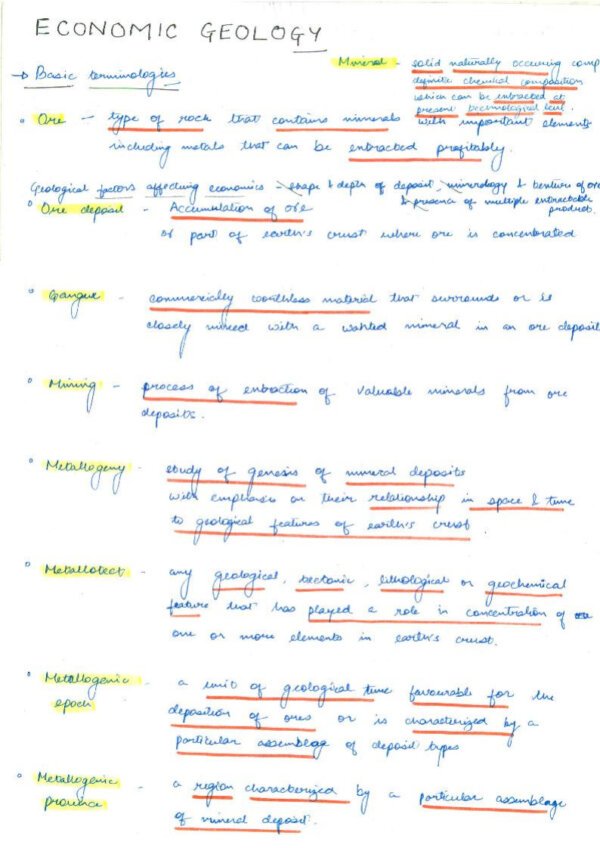 ECONOMIC GEOLOGY
Mineral - solid naturally occuring comp
definite chemical composition
which can be extracted at
present technological level.
→ Basic terminologies
• Ore - type of rock that contains minerals with important elements
including metals that can be extracted profitably.
Geological factors affecting economics - shape & depth of deposit, minerology & texture of ore
& presence of multiple extractable
product.
• Ore deposit - Accumulation of ore
or part of earth's crust where ore is concentrated
• Gangue - commercially worthless material that surrounds or is
closely mixed with a wanted mineral in an ore deposit
• Mining - process of extraction of valuable minerals from ore
deposits.
• Metallogeny - study of genesis of mineral deposits
with emphasis on their relationship in space & time
to geological features of earth's crust.
• Metallotect - any geological, tectonic, lithological or geochemical
feature that has played a role in concentration of
one or more elements in earth's crust.
• Metallogenic - a unit of geological time favourable for the
epoch deposition of ores or is characterized by a
particular assemblage of deposit types
• Metallogenic - a region characterized by a particular assemblage
province of mineral deposit.